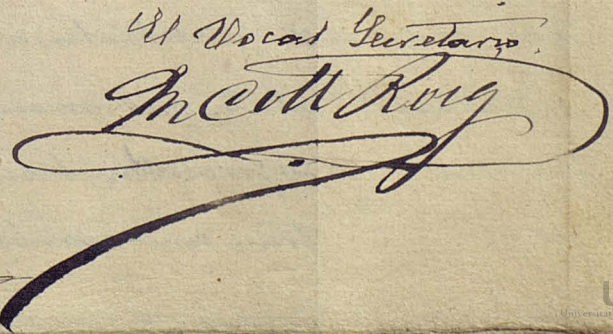 El Vocal Secretario.
M Coll Roig